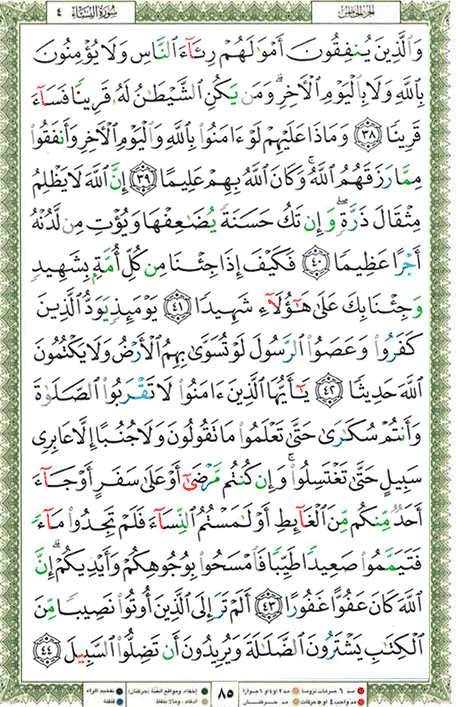 الجزء الخامس ٤ سورة النساء
وَٱلَّذِينَ يُنفِقُونَ أَمْوَٰلَهُمْ رِئَآءَ ٱلنَّاسِ وَلَا يُؤْمِنُونَ
بِٱللَّهِ وَلَا بِٱلْيَوْمِ ٱلْأَخِرِ ۗ وَمَن يَكُنِ ٱلشَّيْطَٰنُ لَهُۥ قَرِينًا فَسَآءَ
قَرِينًا ٣٨ وَمَاذَا عَلَيْهِمْ لَوْ ءَامَنُوا۟ بِٱللَّهِ وَٱلْيَوْمِ ٱلْأَخِرِ وَأَنفَقُوا۟
مِمَّا رَزَقَهُمُ ٱللَّهُ ۚ وَكَانَ ٱللَّهُ بِهِمْ عَلِيمًا ٣٩ إِنَّ ٱللَّهَ لَا يَظْلِمُ
مِثْقَالَ ذَرَّةٍ ۖ وَإِن تَكُ حَسَنَةً يُضَٰعِفْهَا وَيُؤْتِ مِن لَّدُنْهُ
أَجْرًا عَظِيمًا ٤٠ فَكَيْفَ إِذَا جِئْنَا مِن كُلِّ أُمَّةٍۭ بِشَهِيدٍ
وَجِئْنَا بِكَ عَلَىٰ هَٰٓؤُلَآءِ شَهِيدًا ٤١ يَوْمَئِذٍ يَوَدُّ ٱلَّذِينَ
كَفَرُوا۟ وَعَصَوُا۟ ٱلرَّسُولَ لَوْ تُسَوَّىٰ بِهِمُ ٱلْأَرْضُ وَلَا يَكْتُمُونَ
ٱللَّهَ حَدِيثًا ٤٢ يَٰٓأَيُّهَا ٱلَّذِينَ ءَامَنُوا۟ لَا تَقْرَبُوا۟ ٱلصَّلَوٰةَ
وَأَنتُمْ سُكَٰرَىٰ حَتَّىٰ تَعْلَمُوا۟ مَا تَقُولُونَ وَلَا جُنُبًا إِلَّا عَابِرِى
سَبِيلٍ حَتَّىٰ تَغْتَسِلُوا۟ ۚ وَإِن كُنتُم مَّرْضَىٰٓ أَوْ عَلَىٰ سَفَرٍ أَوْ جَآءَ
أَحَدٌ مِّنكُم مِّنَ ٱلْغَآئِطِ أَوْ لَٰمَسْتُمُ ٱلنِّسَآءَ فَلَمْ تَجِدُوا۟ مَآءً
فَتَيَمَّمُوا۟ صَعِيدًا طَيِّبًا فَٱمْسَحُوا۟ بِوُجُوهِكُمْ وَأَيْدِيكُمْ ۗ إِنَّ
ٱللَّهَ كَانَ عَفُوًّا غَفُورًا ٤٣ أَلَمْ تَرَ إِلَى ٱلَّذِينَ أُوتُوا۟ نَصِيبًا مِّنَ
ٱلْكِتَٰبِ يَشْتَرُونَ ٱلضَّلَٰلَةَ وَيُرِيدُونَ أَن تَضِلُّوا۟ ٱلسَّبِيلَ ٤٤
مد ٦ حركات لزوماً مد ٢ او ٤ او ٦ جوازاً ٨٥ إخفاء، ومواقع الغنّة (حركتان) تفخيم الراء
مد واجب ٤ او ٥ حركات مد حركتان إدغام، وما لا يلفظ قلقلة